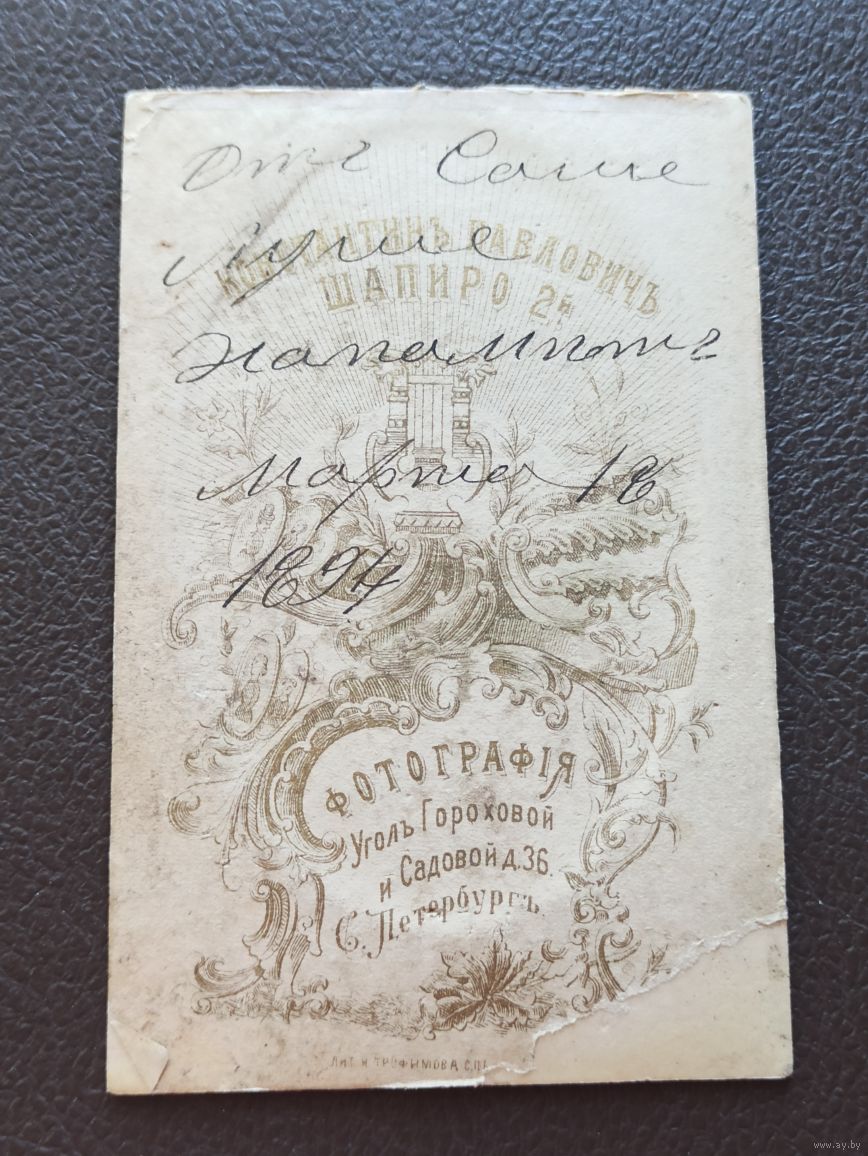 Отъ Саши
КОНСТАНТИНЪ ПАВЛОВИЧЪ
ШАПИРО 2й
Марта 18
1894
ФОТОГРАФІЯ
Уголъ Гороховой
и Садовой д.36.
С. Петербургъ.
ЛИТ. И ТРОФИМОВА С.П.
www.ay.by